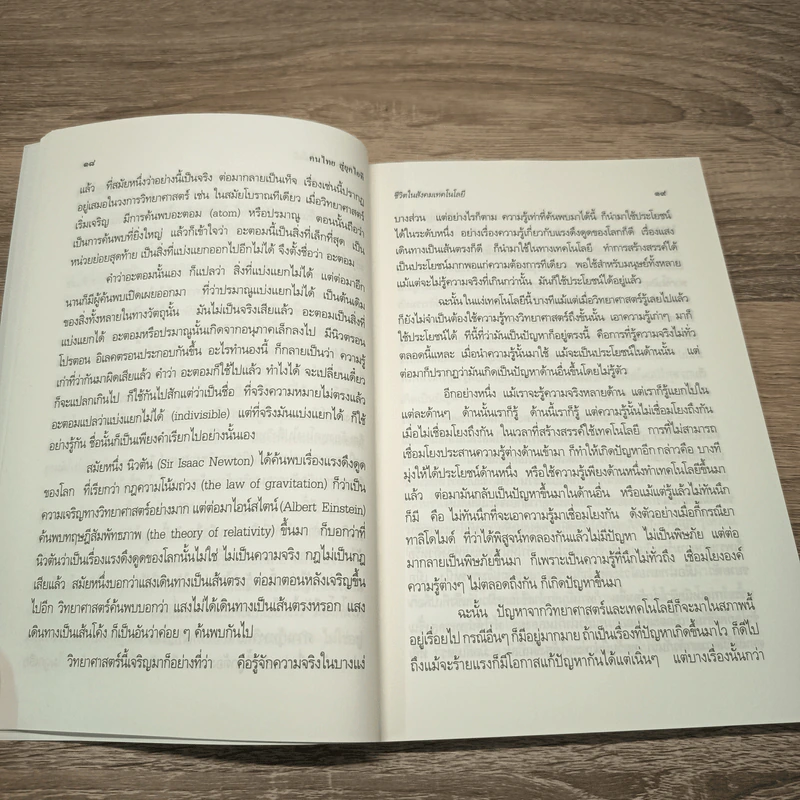 ๑๘ คนไทย สู่ยุคไอที
แล้ว ที่สมัยหนึ่งว่าอย่างนี้เป็นจริง ต่อมากลายเป็นเท็จ เรื่องเช่นนี้ปรากฏ
อยู่เสมอในวงการวิทยาศาสตร์ เช่น ในสมัยโบราณทีเดียว เมื่อวิทยาศาสตร์
เริ่มเจริญ มีการค้นพบอะตอม (atom) หรือปรมาณู ตอนนั้นถือว่า
เป็นการค้นพบที่ยิ่งใหญ่ แล้วก็เข้าใจว่า อะตอมนี้เป็นสิ่งที่เล็กที่สุด เป็น
หน่วยย่อยสุดท้าย เป็นสิ่งที่แบ่งแยกออกไปอีกไม่ได้ จึงตั้งชื่อว่า อะตอม
คำว่าอะตอมนั้นเอง ก็แปลว่า สิ่งที่แบ่งแยกไม่ได้ แต่ต่อมาอีก
นานก็มีผู้ค้นพบเปิดเผยออกมา ที่ว่าปรมาณูแบ่งแยกไม่ได้ เป็นต้นเดิม
ของสิ่งทั้งหลายในทางวัตถุนั้น มันไม่เป็นจริงเสียแล้ว อะตอมเป็นสิ่งที่
แบ่งแยกได้ อะตอมหรือปรมาณูนั้นเกิดจากอนุภาคเล็กลงไป มีนิวตรอน
โปรตอน อิเลคตรอนประกอบกันขึ้น อะไรทำนองนี้ ก็กลายเป็นว่า ความรู้
เก่าที่ว่ากันมาผิดเสียแล้ว คำว่า อะตอมก็ใช้ไปแล้ว ทำไงได้ จะเปลี่ยนเดี๋ยว
ก็จะแปลกเกินไป ก็ใช้กันไปสักแต่ว่าเป็นชื่อ ที่จริงความหมายไม่ตรงแล้ว
อะตอมแปลว่าแบ่งแยกไม่ได้ (indivisible) แต่ที่จริงมันแบ่งแยกได้ ก็ใช้
อย่างรู้กัน ชื่อนั้นก็เป็นเพียงคำเรียกไปอย่างนั้นเอง
สมัยหนึ่ง นิวตัน (Sir Isaac Newton) ได้ค้นพบเรื่องแรงดึงดูด
ของโลก ที่เรียกว่า กฎความโน้มถ่วง (the law of gravitation) ก็ว่าเป็น
ความเจริญทางวิทยาศาสตร์อย่างมาก แต่ต่อมาไอน์สไตน์ (Albert Einstein)
ค้นพบทฤษฎีสัมพัทธภาพ (the theory of relativity) ขึ้นมา ก็บอกว่าที่
นิวตันว่าเป็นเรื่องแรงดึงดูดของโลกนั้นไม่ใช่ ไม่เป็นความจริง กฎไม่เป็นกฎ
เสียแล้ว สมัยหนึ่งบอกว่าแสงเดินทางเป็นเส้นตรง ต่อมาตอนหลังเจริญขึ้น
ไปอีก วิทยาศาสตร์ค้นพบบอกว่า แสงไม่ได้เดินทางเป็นเส้นตรงหรอก แสง
เดินทางเป็นเส้นโค้ง ก็เป็นอันว่าค่อย ๆ ค้นพบกันไป
วิทยาศาสตร์นี้เจริญมาก็อย่างที่ว่า คือรู้จักความจริงในบางแง่
ชีวิตในสังคมเทคโนโลยี ๑๙
บางส่วน แต่อย่างไรก็ตาม ความรู้เท่าที่ค้นพบมาได้นี้ ก็นำมาใช้ประโยชน์
ได้ในระดับหนึ่ง อย่างเรื่องความรู้เกี่ยวกับแรงดึงดูดของโลกก็ดี เรื่องแสง
เดินทางเป็นเส้นตรงก็ดี ก็นำมาใช้ในทางเทคโนโลยี ทำการสร้างสรรค์ได้
เป็นประโยชน์มากพอแก่ความต้องการทีเดียว พอใช้สำหรับมนุษย์ทั้งหลาย
แม้แต่จะไม่รู้ความจริงที่เกินกว่านั้น มันก็ใช้ประโยชน์ได้อยู่แล้ว
ฉะนั้นในแง่เทคโนโลยีนี้บางทีแม้แต่เมื่อวิทยาศาสตร์รู้เลยไปแล้ว
ก็ยังไม่จำเป็นต้องใช้ความรู้ทางวิทยาศาสตร์ถึงขั้นนั้น เอาความรู้เก่าๆ มาก็
ใช้ประโยชน์ได้ ทีนี้ที่ว่ามันเป็นปัญหาก็อยู่ตรงนี้ คือการที่รู้ความจริงไม่ทั่ว
ตลอดนี่แหละ เมื่อนำความรู้นั้นมาใช้ แม้จะเป็นประโยชน์ในด้านนั้น แต่
ต่อมาก็ปรากฏว่ามันเกิดเป็นปัญหาด้านอื่นขึ้นโดยไม่รู้ตัว
อีกอย่างหนึ่ง แม้เราจะรู้ความจริงหลายด้าน แต่เราก็รู้แยกไปใน
แต่ละด้านๆ ด้านนั้นเราก็รู้ ด้านนี้เราก็รู้ แต่ความรู้นั้นไม่เชื่อมโยงถึงกัน
เมื่อไม่เชื่อมโยงถึงกัน ในเวลาที่สร้างสรรค์ใช้เทคโนโลยี การที่ไม่สามารถ
เชื่อมโยงประสานความรู้ต่างด้านเข้ามา ก็ทำให้เกิดปัญหาอีก กล่าวคือ บางที
มุ่งให้ได้ประโยชน์ด้านหนึ่ง หรือใช้ความรู้เพียงด้านหนึ่งทำเทคโนโลยีขึ้นมา
แล้ว ต่อมามันกลับเป็นปัญหาขึ้นมาในด้านอื่น หรือแม้แต่รู้แล้วไม่ทันนึก
ก็มี คือ ไม่ทันนึกที่จะเอาความรู้มาเชื่อมโยงกัน ดังตัวอย่างเมื่อกี้กรณียา
ทาลิโดไมด์ ที่ว่าได้พิสูจน์ทดลองกันแล้วไม่มีปัญหา ไม่เป็นพิษภัย แต่ต่อ
มากลายเป็นพิษภัยขึ้นมา ก็เพราะเป็นความรู้ที่นึกไม่ทั่วถึง เชื่อมโยงองค์
ความรู้ต่างๆ ไม่ตลอดถึงกัน ก็เกิดปัญหาขึ้นมา
ฉะนั้น ปัญหาจากวิทยาศาสตร์และเทคโนโลยีก็จะมาในสภาพนี้
อยู่เรื่อยไป กรณีอื่นๆ ก็มีอยู่มากมาย ถ้าเป็นเรื่องที่ปัญหาเกิดขึ้นมาไว ก็ดีไป
ถึงแม้จะร้ายแรงก็มีโอกาสแก้ปัญหากันได้แต่เนิ่นๆ แต่บางเรื่องนั้นกว่า